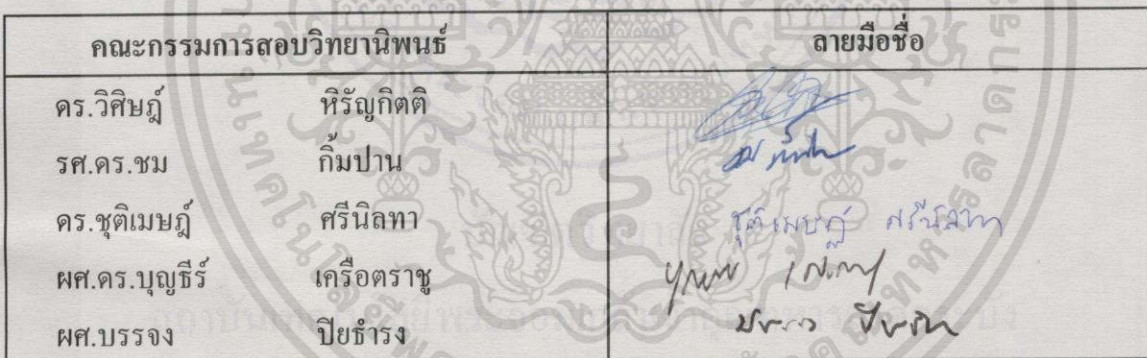 คณะกรรมการสอบวิทยานิพนธ์ ลายมือชื่อ
ดร.วิศิษฎ์ หิรัญกิตติ
รศ.ดร.ชม กิ้มปาน
ดร.ชุติเมษฎ์ ศรีนิลทา ชุติเมษฎ์ ศรีนิลทา
ผศ.ดร.บุญธีร์ เครือตราชู
ผศ.บรรจง ปิยธำรง